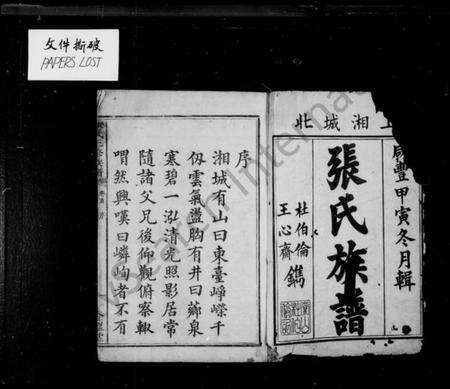 文件撕破
PAPERS LOST
上湘城北
咸豐甲寅冬月輯
張氏族譜
杜伯倫
王心齋
鐫
序
湘城有山曰東臺崢嶸千
仭雲氣盪胸有井曰薌泉
寒碧一泓清光照影居常
隨諸父兄後仰觀俯察輙
喟然興嘆曰嶙峋者不有